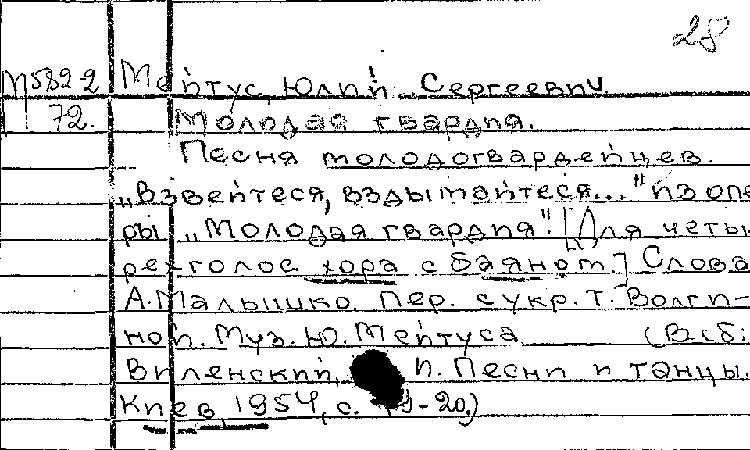 28
М582-2 Мейтус, Юлий Сергеевич.
72. Молодая гвардия.
Песня молодогвардейцев.
„Взвейтеся, вздымайтеся..." из опе-
ры „Молодая гвардия". [Для четы-
рехголос. хора с баяном.] Слова
А. Малышко. Пер. с укр. Т. Волги-
ной. Муз. Ю. Мейтуса (В сб:
Виленский, И. Песни и танцы.
Киев, 1954, с. -20.)